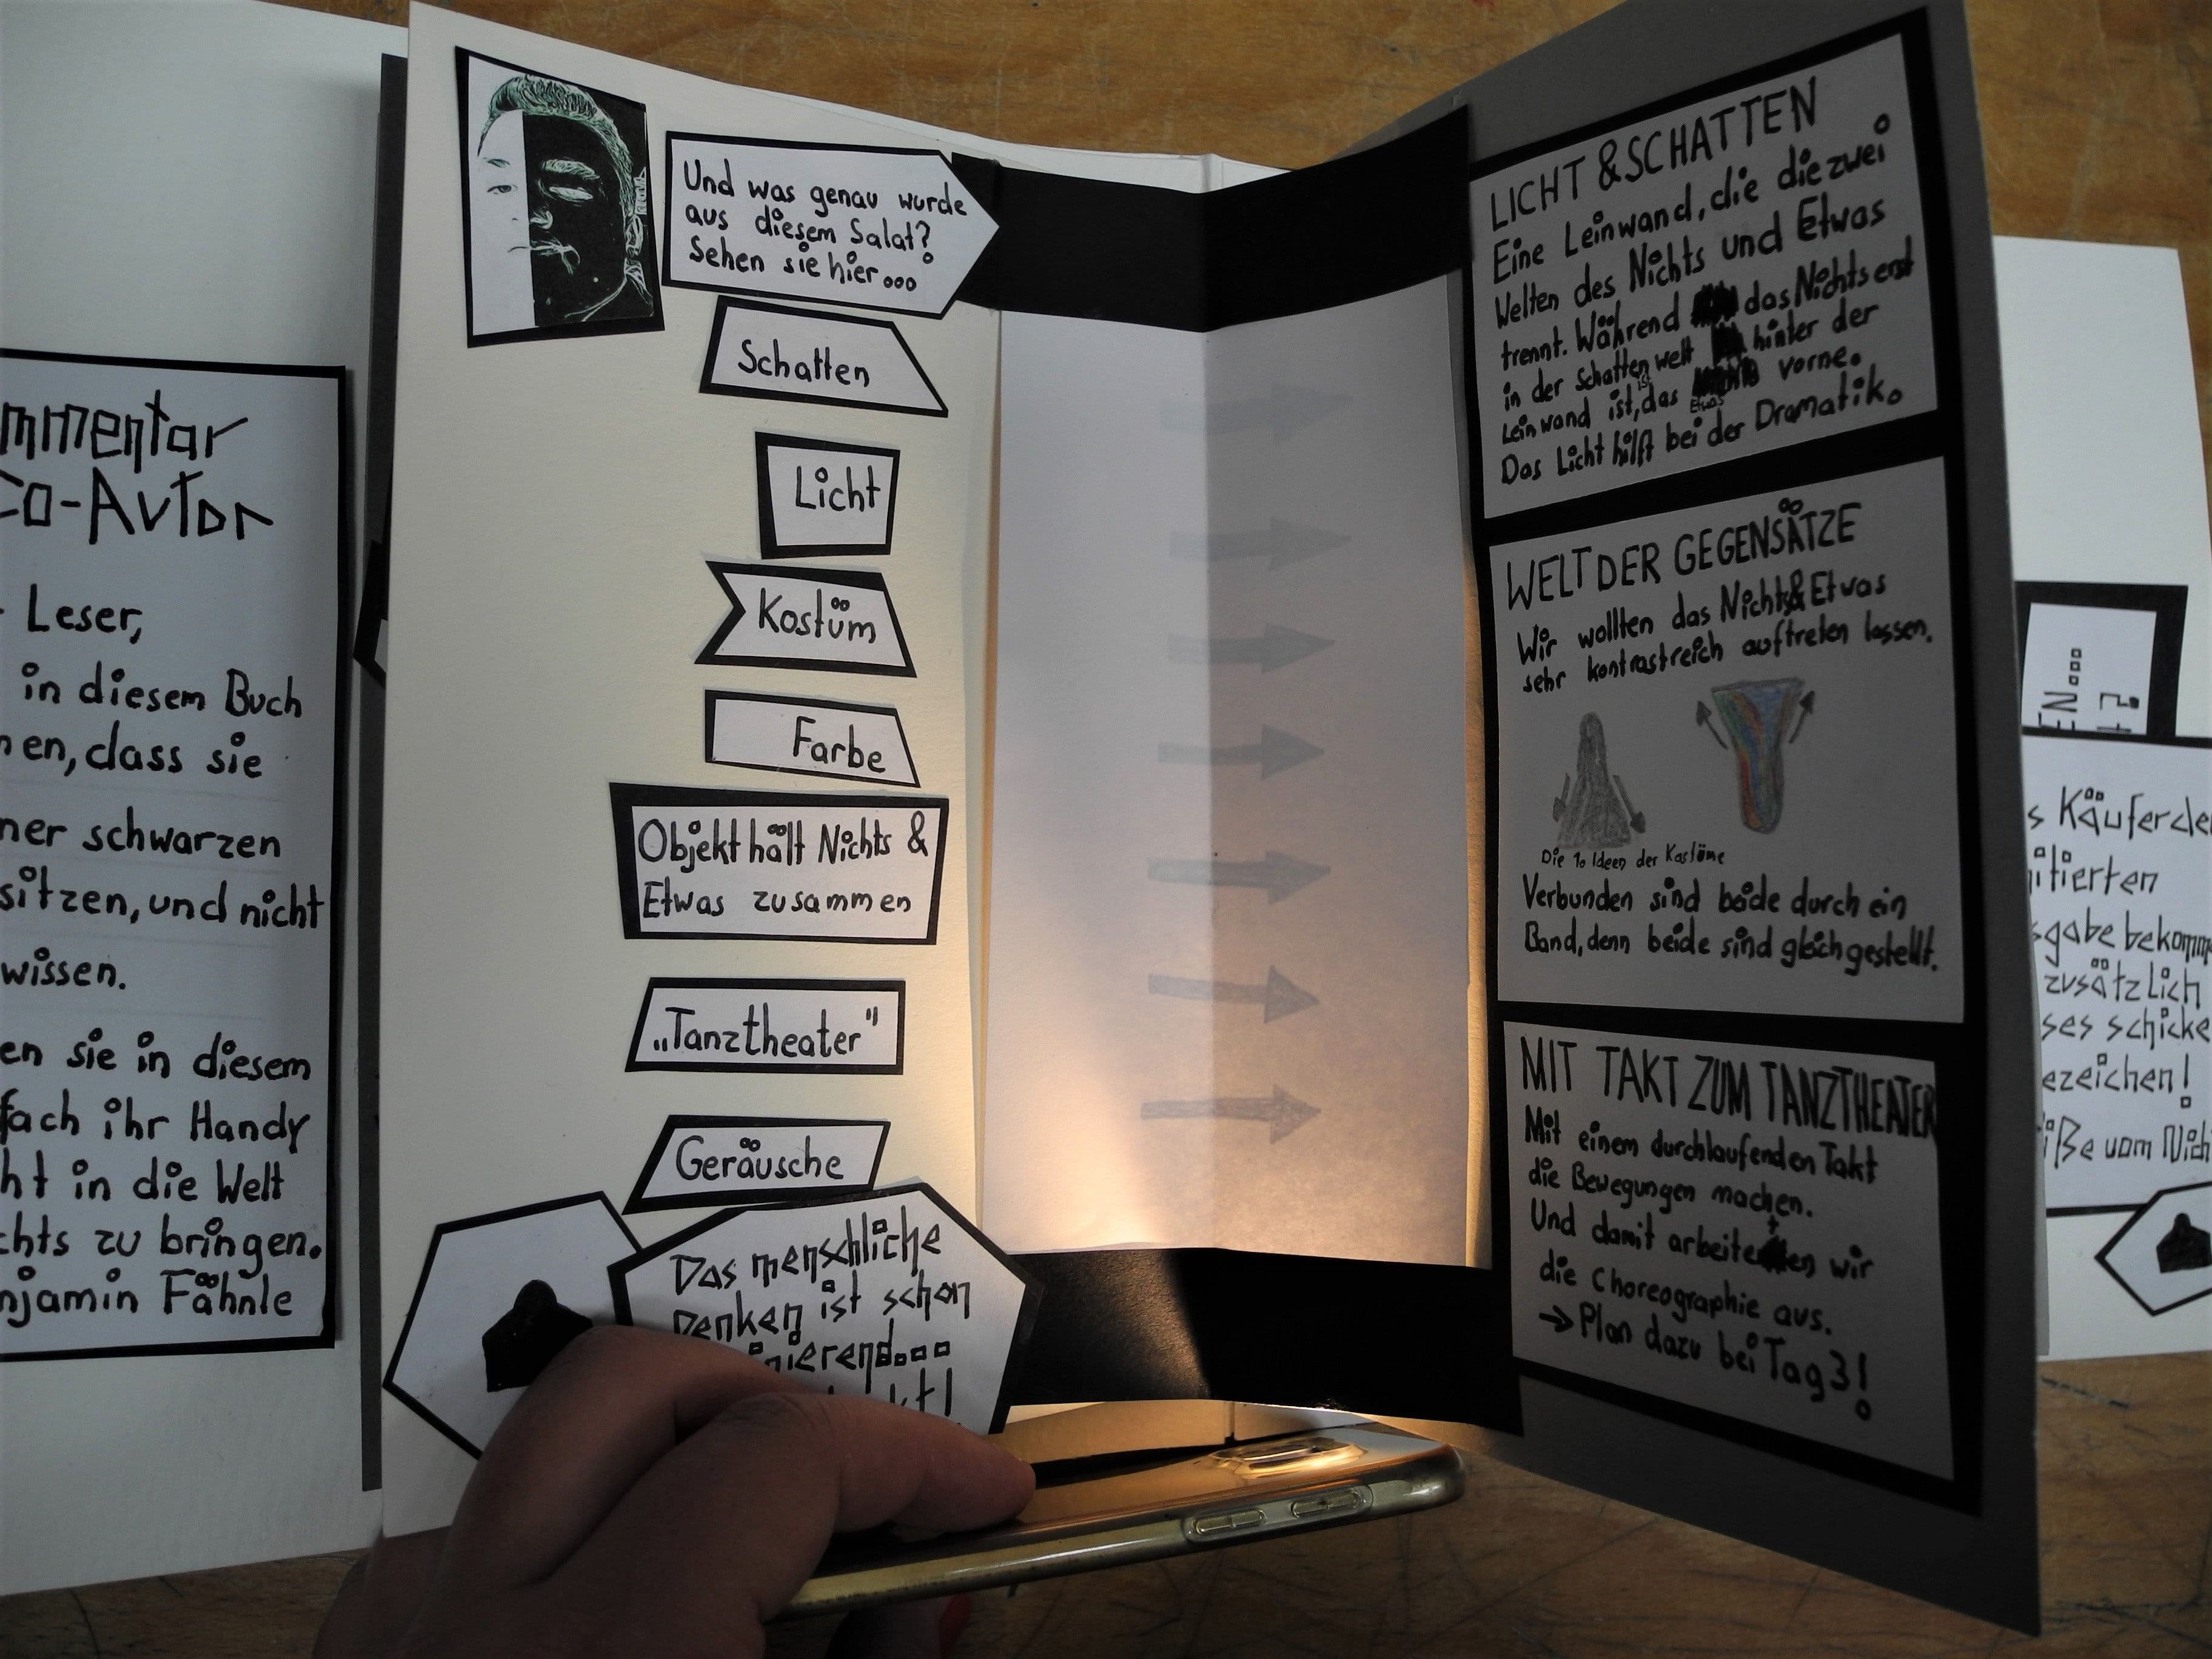 mmentar
Co-Autor
Leser,
in diesem Buch
en, dass sie
ner schwarzen
sitzen, und nicht
wissen.
en sie in diesem
fach ihr Handy
ht in die Welt
chts zu bringen.
njamin Fähnle
Und was genau wurde
aus diesem Salat?
Sehen sie hier...
Schatten
Licht
Kostüm
Farbe
Objekt hält Nichts &
Etwas zusammen
„Tanztheater"
Geräusche
Das menschliche
Denken ist schon
nierend...
kt!
LICHT & SCHATTEN
Eine Leinwand, die die zwei
Welten des Nichts und Etwas
trennt. Während das Nichts erst
in der Schattenwelt hinter der
Leinwand ist, das Etwas ist vorne.
Das Licht hilft bei der Dramatik.
WELT DER GEGENSÄTZE
Wir wollten das Nichts & Etwas
sehr kontrastreich auftreten lassen.
Die 1o Ideen der Kostüme
Verbunden sind beide durch ein
Band, denn beide sind gleichgestellt.
MIT TAKT ZUM TANZTHEATER
Mit einem durchlaufenden Takt
die Bewegungen machen.
Und damit arbeiteten wir
die Choreographie aus.
→ Plan dazu bei Tag 3!
EN...
t?
s Käufer de
itierten
sgabe bekomm
zusätzlich
ses schicke
ezeichen!
üße vom Nich